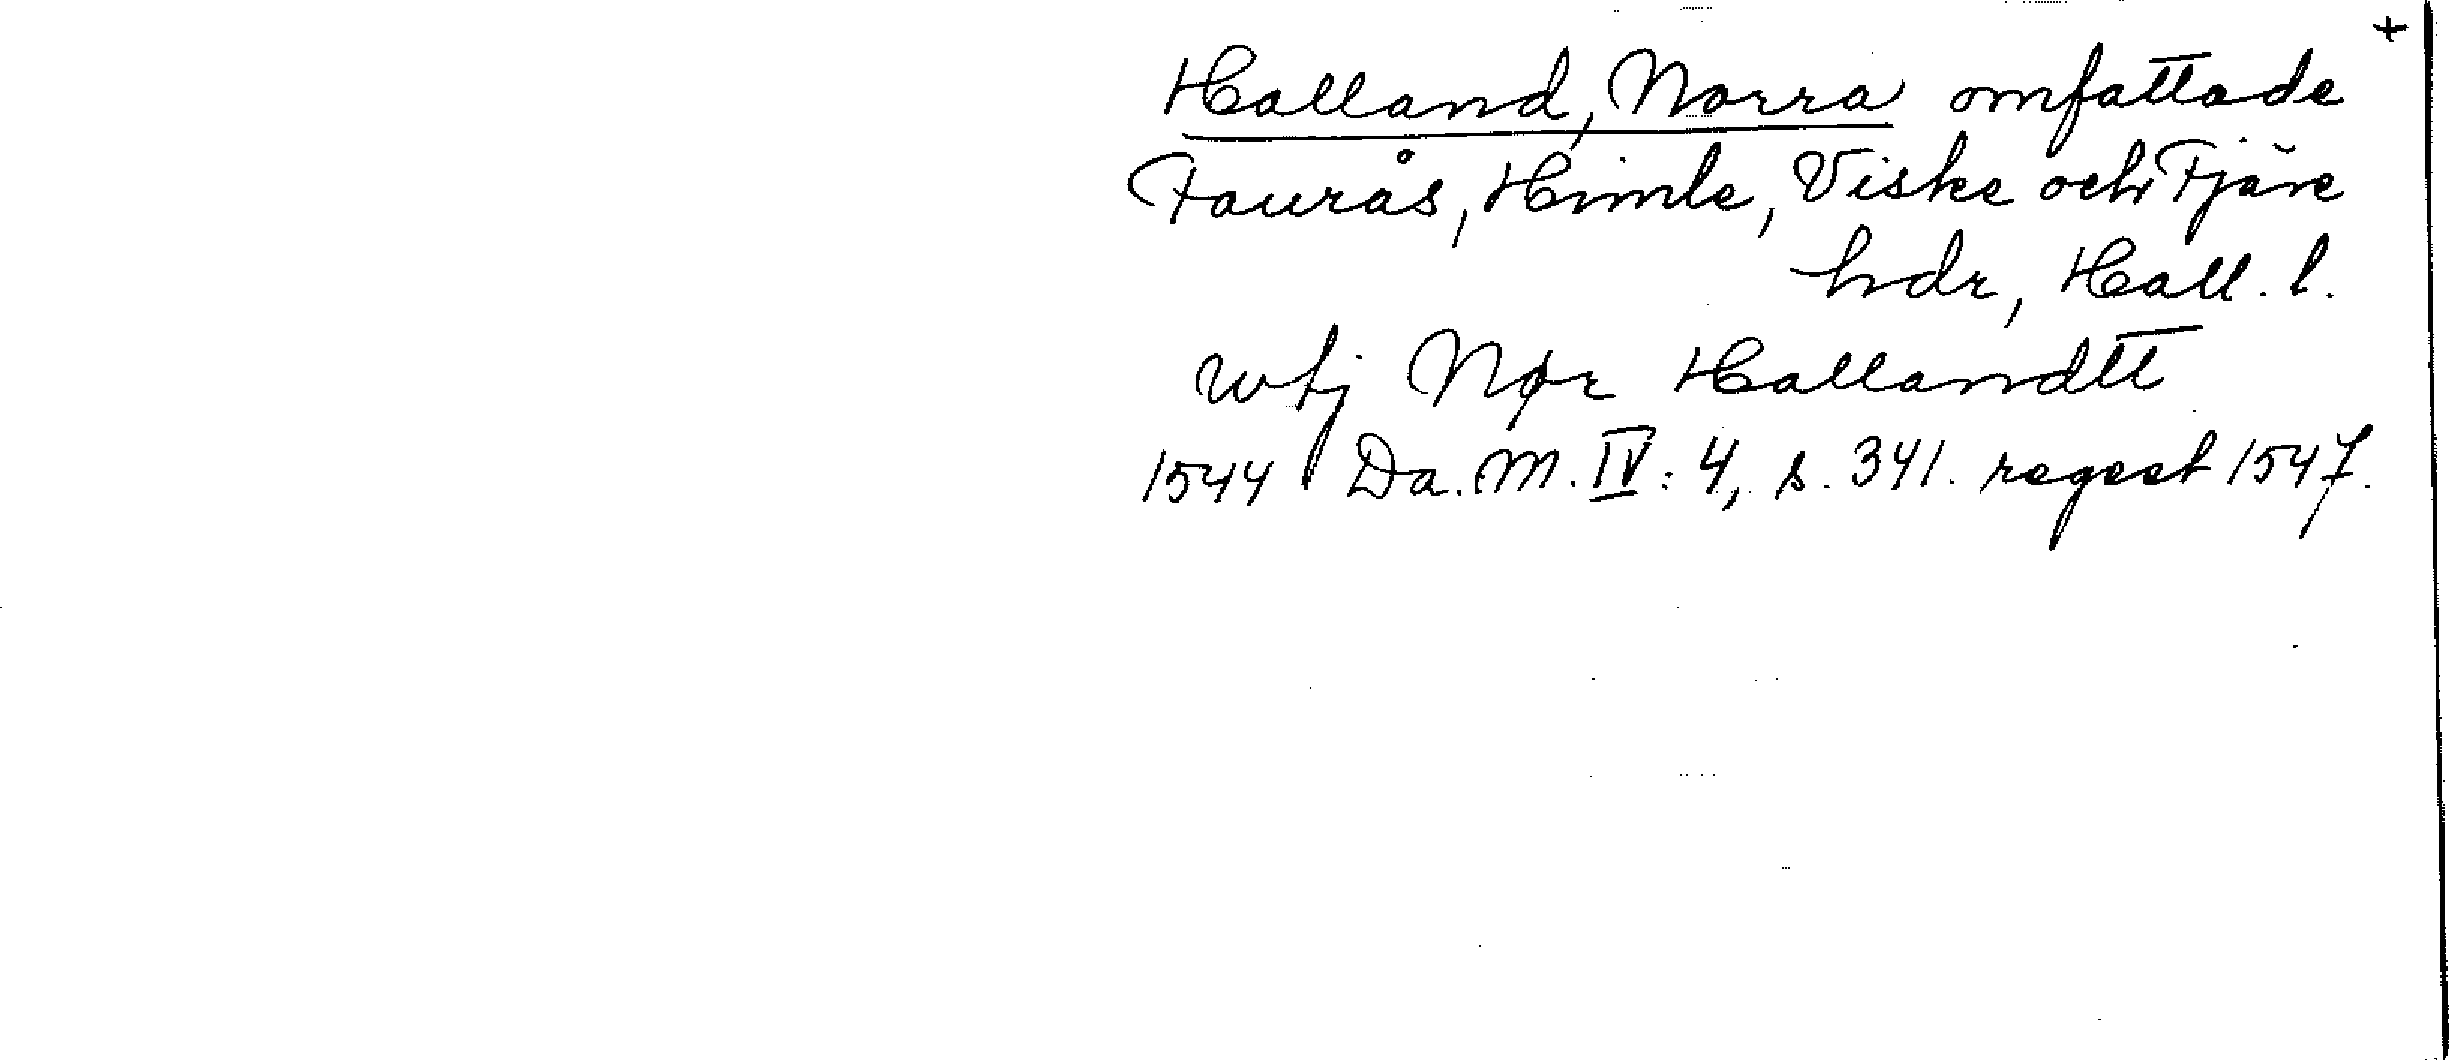 +
Halland, Norra omfattade
Faurås, Himle, Viske och Fjäre
hdr, Hall. l.
wtj Nør Hallandtt
1544 Da. M. IV: 4, s. 341. regest 1547.